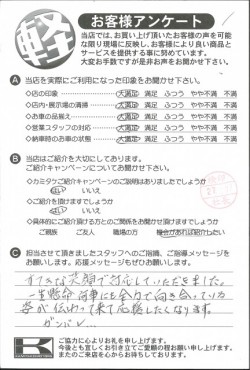 軽
お客様アンケート
当店では、お買い上げ頂いたお客様の声を可能
な限り現場に反映し、お客様により良い商品と
サービスを提供する事に努めています。
大変お手数ですが是非お声をお聞かせ下さい。
A 当店を実際にご利用になった印象をお聞かせ下さい。
◇店の印象 大満足 満足 ふつう やや不満 不満
◇店内・展示場の清掃 大満足 満足 ふつう やや不満 不満
◇お車の品揃え 大満足 満足 ふつう やや不満 不満
◇営業スタッフの対応 大満足 満足 ふつう やや不満 不満
◇納車時のお車の状態 大満足 満足 ふつう やや不満 不満
B 当店はご紹介を大切にしております。
ご紹介キャンペーンについてお聞かせ下さい。
◇カミタケご紹介キャンペーンのご説明はありましたでしょうか
はい いいえ
◇ご紹介を頂けますでしょうか
はい いいえ
◇具体的にご紹介頂ける方とのご関係をお聞かせ頂けますでしょうか
ご親族 ご友人 職場の方 機会があれば紹介したい
C 担当させて頂きましたスタッフへのご指摘、ご指導メッセージを
お願いします。応援メッセージもぜひお願いします。
すてきな笑顔で対応していただきました。
一生懸命、何事にも全力で向き合っている
姿が伝わって来て応援したくなります。
ガンバレ
K
ご協力に心よりお礼を申し上げます。
今後とも宜しくお引き立てご愛顧の程お願い申し上げます。
またのご来店を心からお待ちしております。